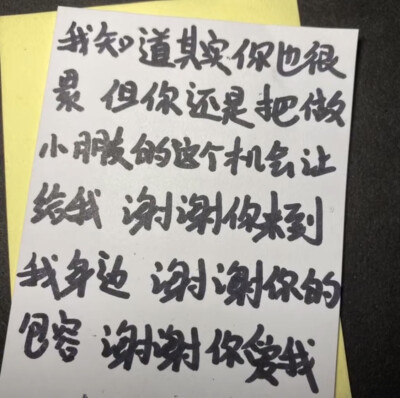 我知道其实你也很
累 但你还是把做
小朋友的这个机会让
给我 谢谢你来到
我身边 谢谢你的
包容 谢谢你爱我